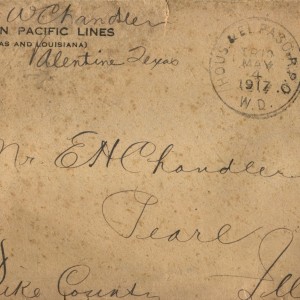 W Chandler
N PACIFIC LINES
AS AND LOUISIANA)
Valentine Texas
HOUS. & EL PASO. R.P.O.
MAY
4
1917
W.D.
Mr E H Chandler
Pearl
Pike County Ill